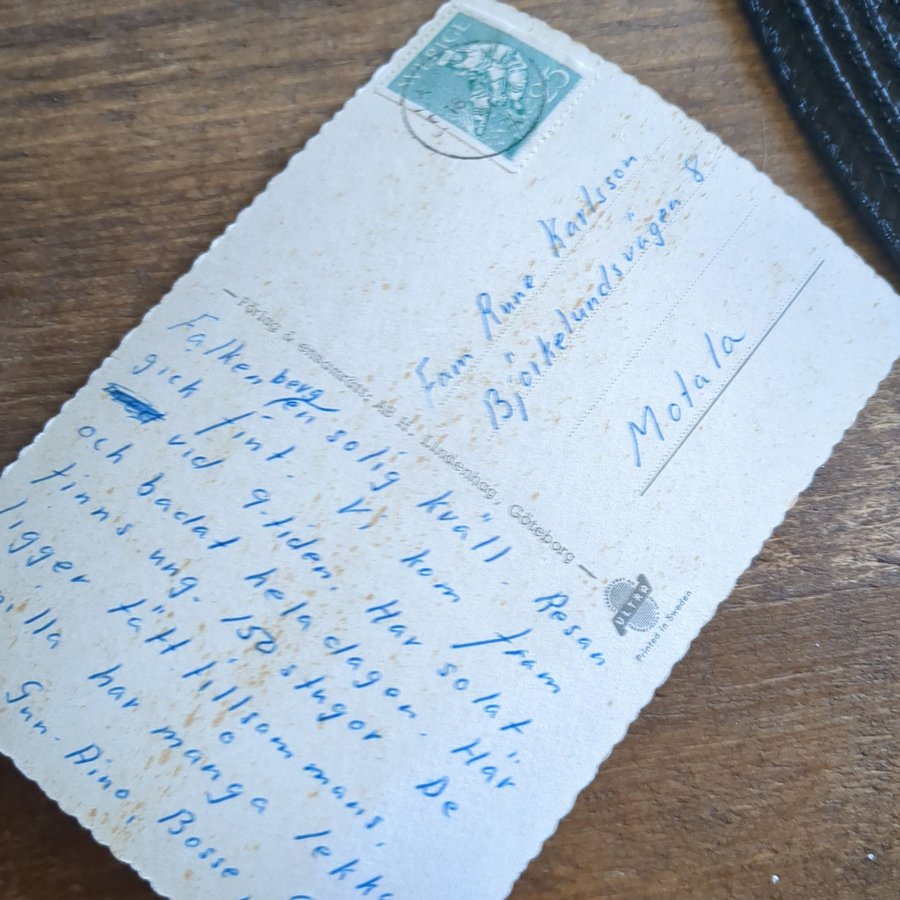 SVERIGE
25
Fam Rune Karlsson
Björkelundsvägen 8
Motala
— Förlag & ensamrätt: AB H. Lindenhag, Göteborg —
ULTRA
Printed in Sweden
Falkenberg en solig kväll. Resan
gick fint. Vi kom fram
vid 9-tiden. Har solat
och badat hela dagen. Här
finns ung. 150 stugor. De
ligger tätt tillsammans,
har många
Gun-Aino, Bosse